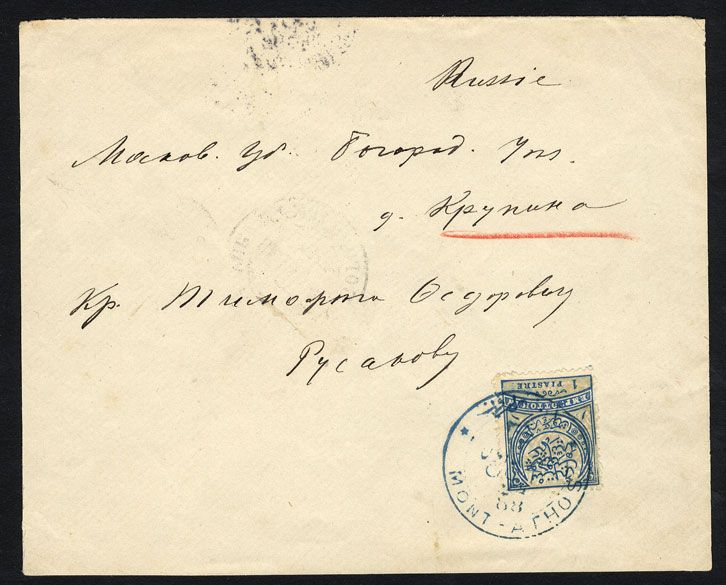 Russie
Москов. Губ. Богород. Уез.
д. Крупина
Кр. Тимофею Федоровичу
Русакову
1
PIASTRE
MONT-ATHOS
88